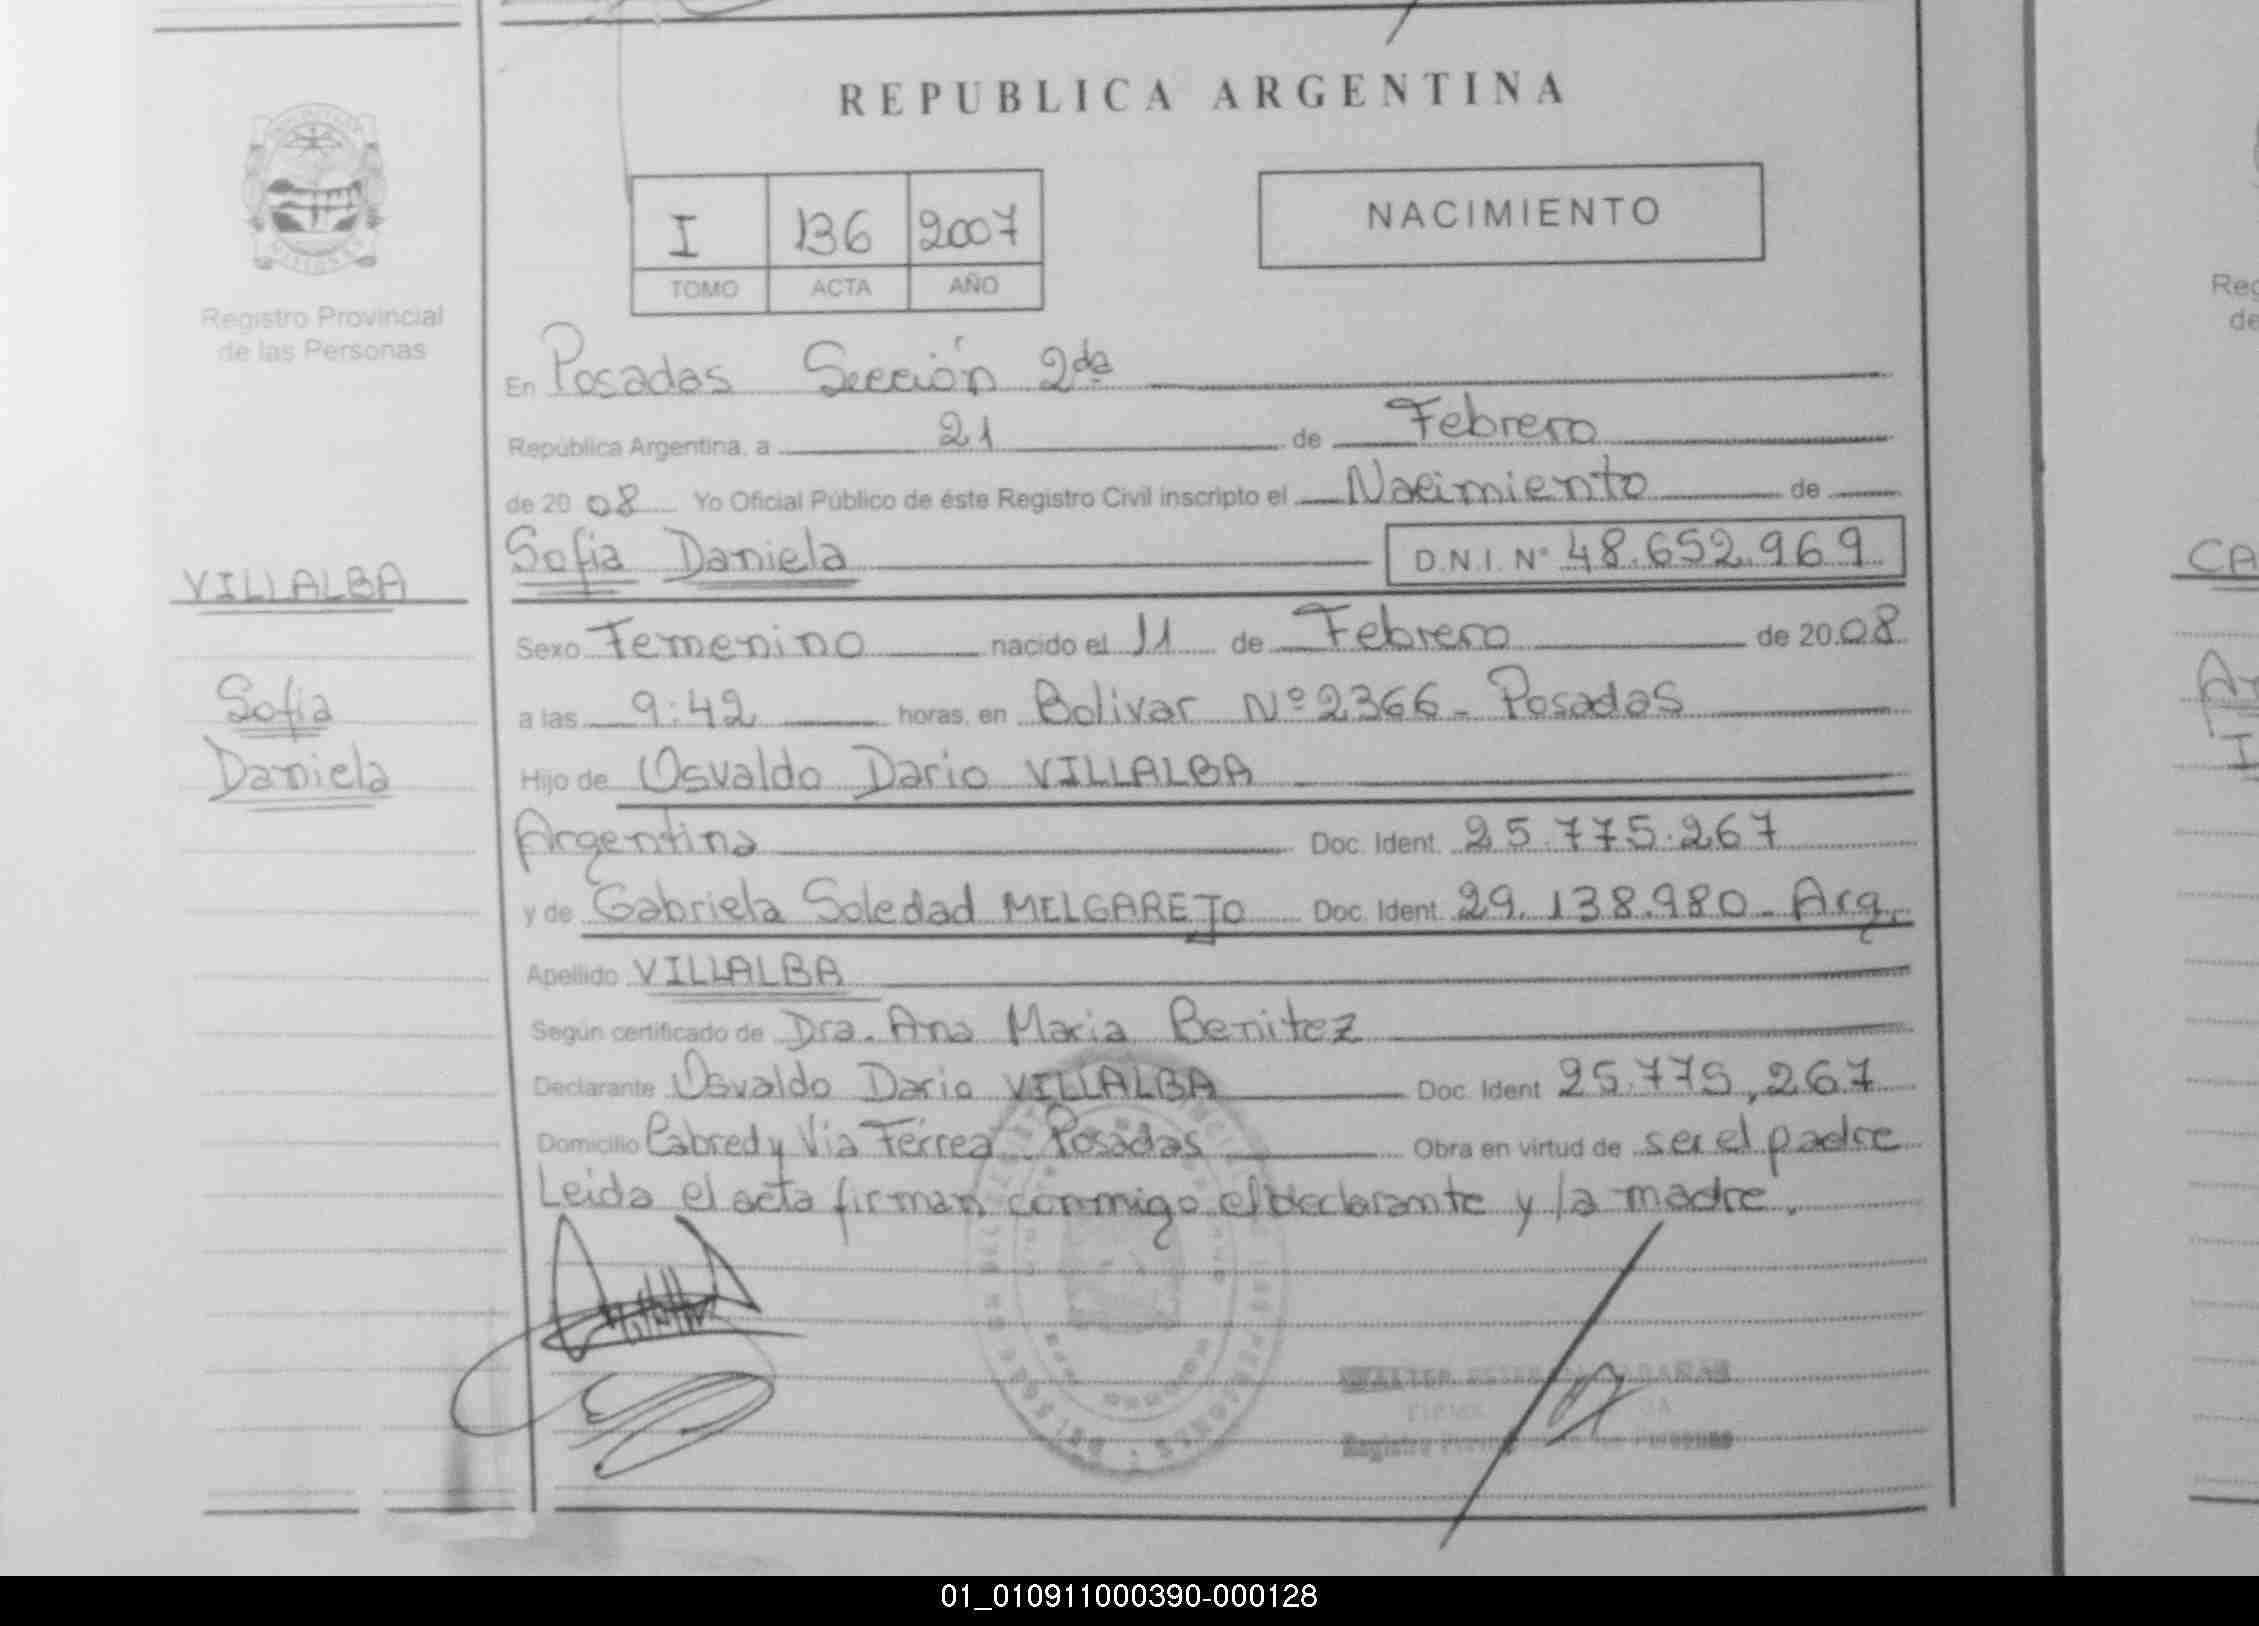 REPUBLICA ARGENTINA
I 136 2007
TOMO ACTA AÑO
NACIMIENTO
Registro Provincial
de las Personas
VILLALBA
Sofia
Daniela
En Posadas Sección 2da
República Argentina, a 21 de Febrero
de 20 08 Yo Oficial Público de éste Registro Civil inscripto el Nacimiento de
Sofia Daniela D.N.I. Nº 48.652.969
Sexo Femenino nacido el 11 de Febrero de 20 08
a las 9:42 horas, en Bolivar Nº 2366 - Posadas
Hijo de Osvaldo Dario VILLALBA
Argentina Doc. Ident. 25.775.267
y de Gabriela Soledad MELGAREJO Doc. Ident. 29.138.980 - Arg.
Apellido VILLALBA
Según certificado de Dra. Ana Maria Benitez
Declarante Osvaldo Dario VILLALBA Doc. Ident 25.775,267
Domicilio Cabred y Via Férrea - Posadas Obra en virtud de ser el padre
Leida el acta firman conmigo el declarante y la madre.
Reg
de
CA
I
01_010911000390-000128